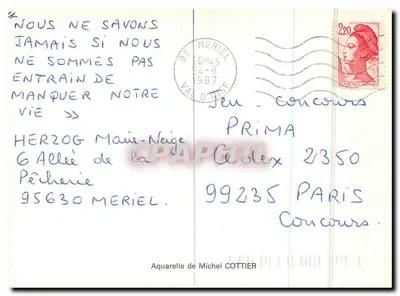 « NOUS NE SAVONS
JAMAIS SI NOUS
NE SOMMES PAS
ENTRAIN DE
MANQUER NOTRE
VIE »
HERZOG Marie-Neige
6 Allée de la
Pêcherie
95630 MERIEL.
95 MERIEL
16H45
24-8
1987
VAL D'OISE
2,20
Jeu-concours
PRIMA
Cedex 2350
99235 PARIS
Concours.
Aquarelle de Michel COTTIER